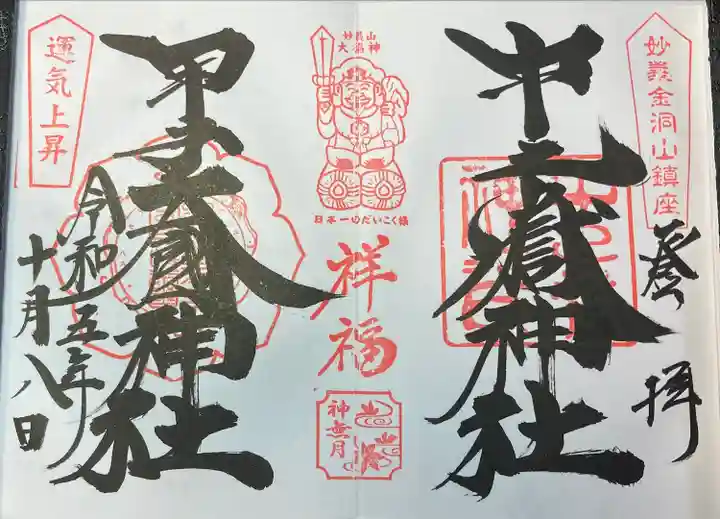 妙義金洞山鎮座
登拝
中之嶽神社
妙義山
日本一のだいこく様
祥福
神無月
運気上昇
甲子大國神社
令和五年
十月八日